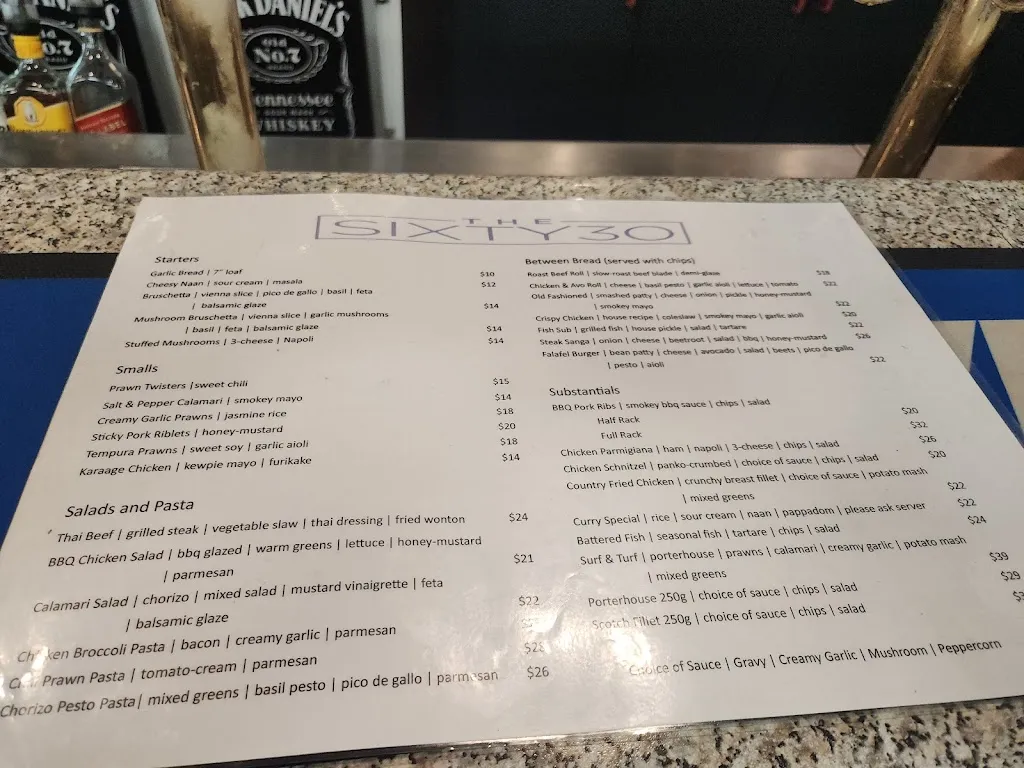 No.7
DANIEL'S
Old
No.7
Tennessee
WHISKEY
THE
SIXTY30
Starters
Garlic Bread | 7" loaf $10
Cheesy Naan | sour cream | masala $12
Bruschetta | vienna slice | pico de gallo | basil | feta
| balsamic glaze $14
Mushroom Bruschetta | vienna slice | garlic mushrooms
| basil | feta | balsamic glaze $14
Stuffed Mushrooms | 3-cheese | Napoli $14
Smalls
Prawn Twisters |sweet chili $15
Salt & Pepper Calamari | smokey mayo $14
Creamy Garlic Prawns | jasmine rice $18
Sticky Pork Riblets | honey-mustard $20
Tempura Prawns | sweet soy | garlic aioli $18
Karaage Chicken | kewpie mayo | furikake $14
Salads and Pasta
Thai Beef | grilled steak | vegetable slaw | thai dressing | fried wonton $24
BBQ Chicken Salad | bbq glazed | warm greens | lettuce | honey-mustard
| parmesan $21
Calamari Salad | chorizo | mixed salad | mustard vinaigrette | feta
| balsamic glaze $22
Chicken Broccoli Pasta | bacon | creamy garlic | parmesan
Prawn Pasta | tomato-cream | parmesan
Chorizo Pesto Pasta| mixed greens | basil pesto | pico de gallo | parmesan $26
Between Bread (served with chips)
Roast Beef Roll | slow-roast beef blade | demi-glaze $18
Chicken & Avo Roll | cheese | basil pesto | garlic aioli | lettuce | tomato $22
Old Fashioned | smashed patty | cheese | onion | pickle | honey-mustard
| smokey mayo $22
Crispy Chicken | house recipe | coleslaw | smokey mayo | garlic aioli $20
Fish Sub | grilled fish | house pickle | salad | tartare $22
Steak Sanga | onion | cheese | beetroot | salad | bbq | honey-mustard $26
Falafel Burger | bean patty | cheese | avocado | salad | beets | pico de gallo
| pesto | aioli $22
Substantials
BBQ Pork Ribs | smokey bbq sauce | chips | salad
Half Rack $20
Full Rack $32
Chicken Parmigiana | ham | napoli | 3-cheese | chips | salad $26
Chicken Schnitzel | panko-crumbed | choice of sauce | chips | salad $20
Country Fried Chicken | crunchy breast fillet | choice of sauce | potato mash
| mixed greens $22
Curry Special | rice | sour cream | naan | pappadom | please ask server $22
Battered Fish | seasonal fish | tartare | chips | salad $24
Surf & Turf | porterhouse | prawns | calamari | creamy garlic | potato mash
| mixed greens $39
Porterhouse 250g | choice of sauce | chips | salad $29
Scotch Fillet 250g | choice of sauce | chips | salad
Choice of Sauce | Gravy | Creamy Garlic | Mushroom | Peppercorn